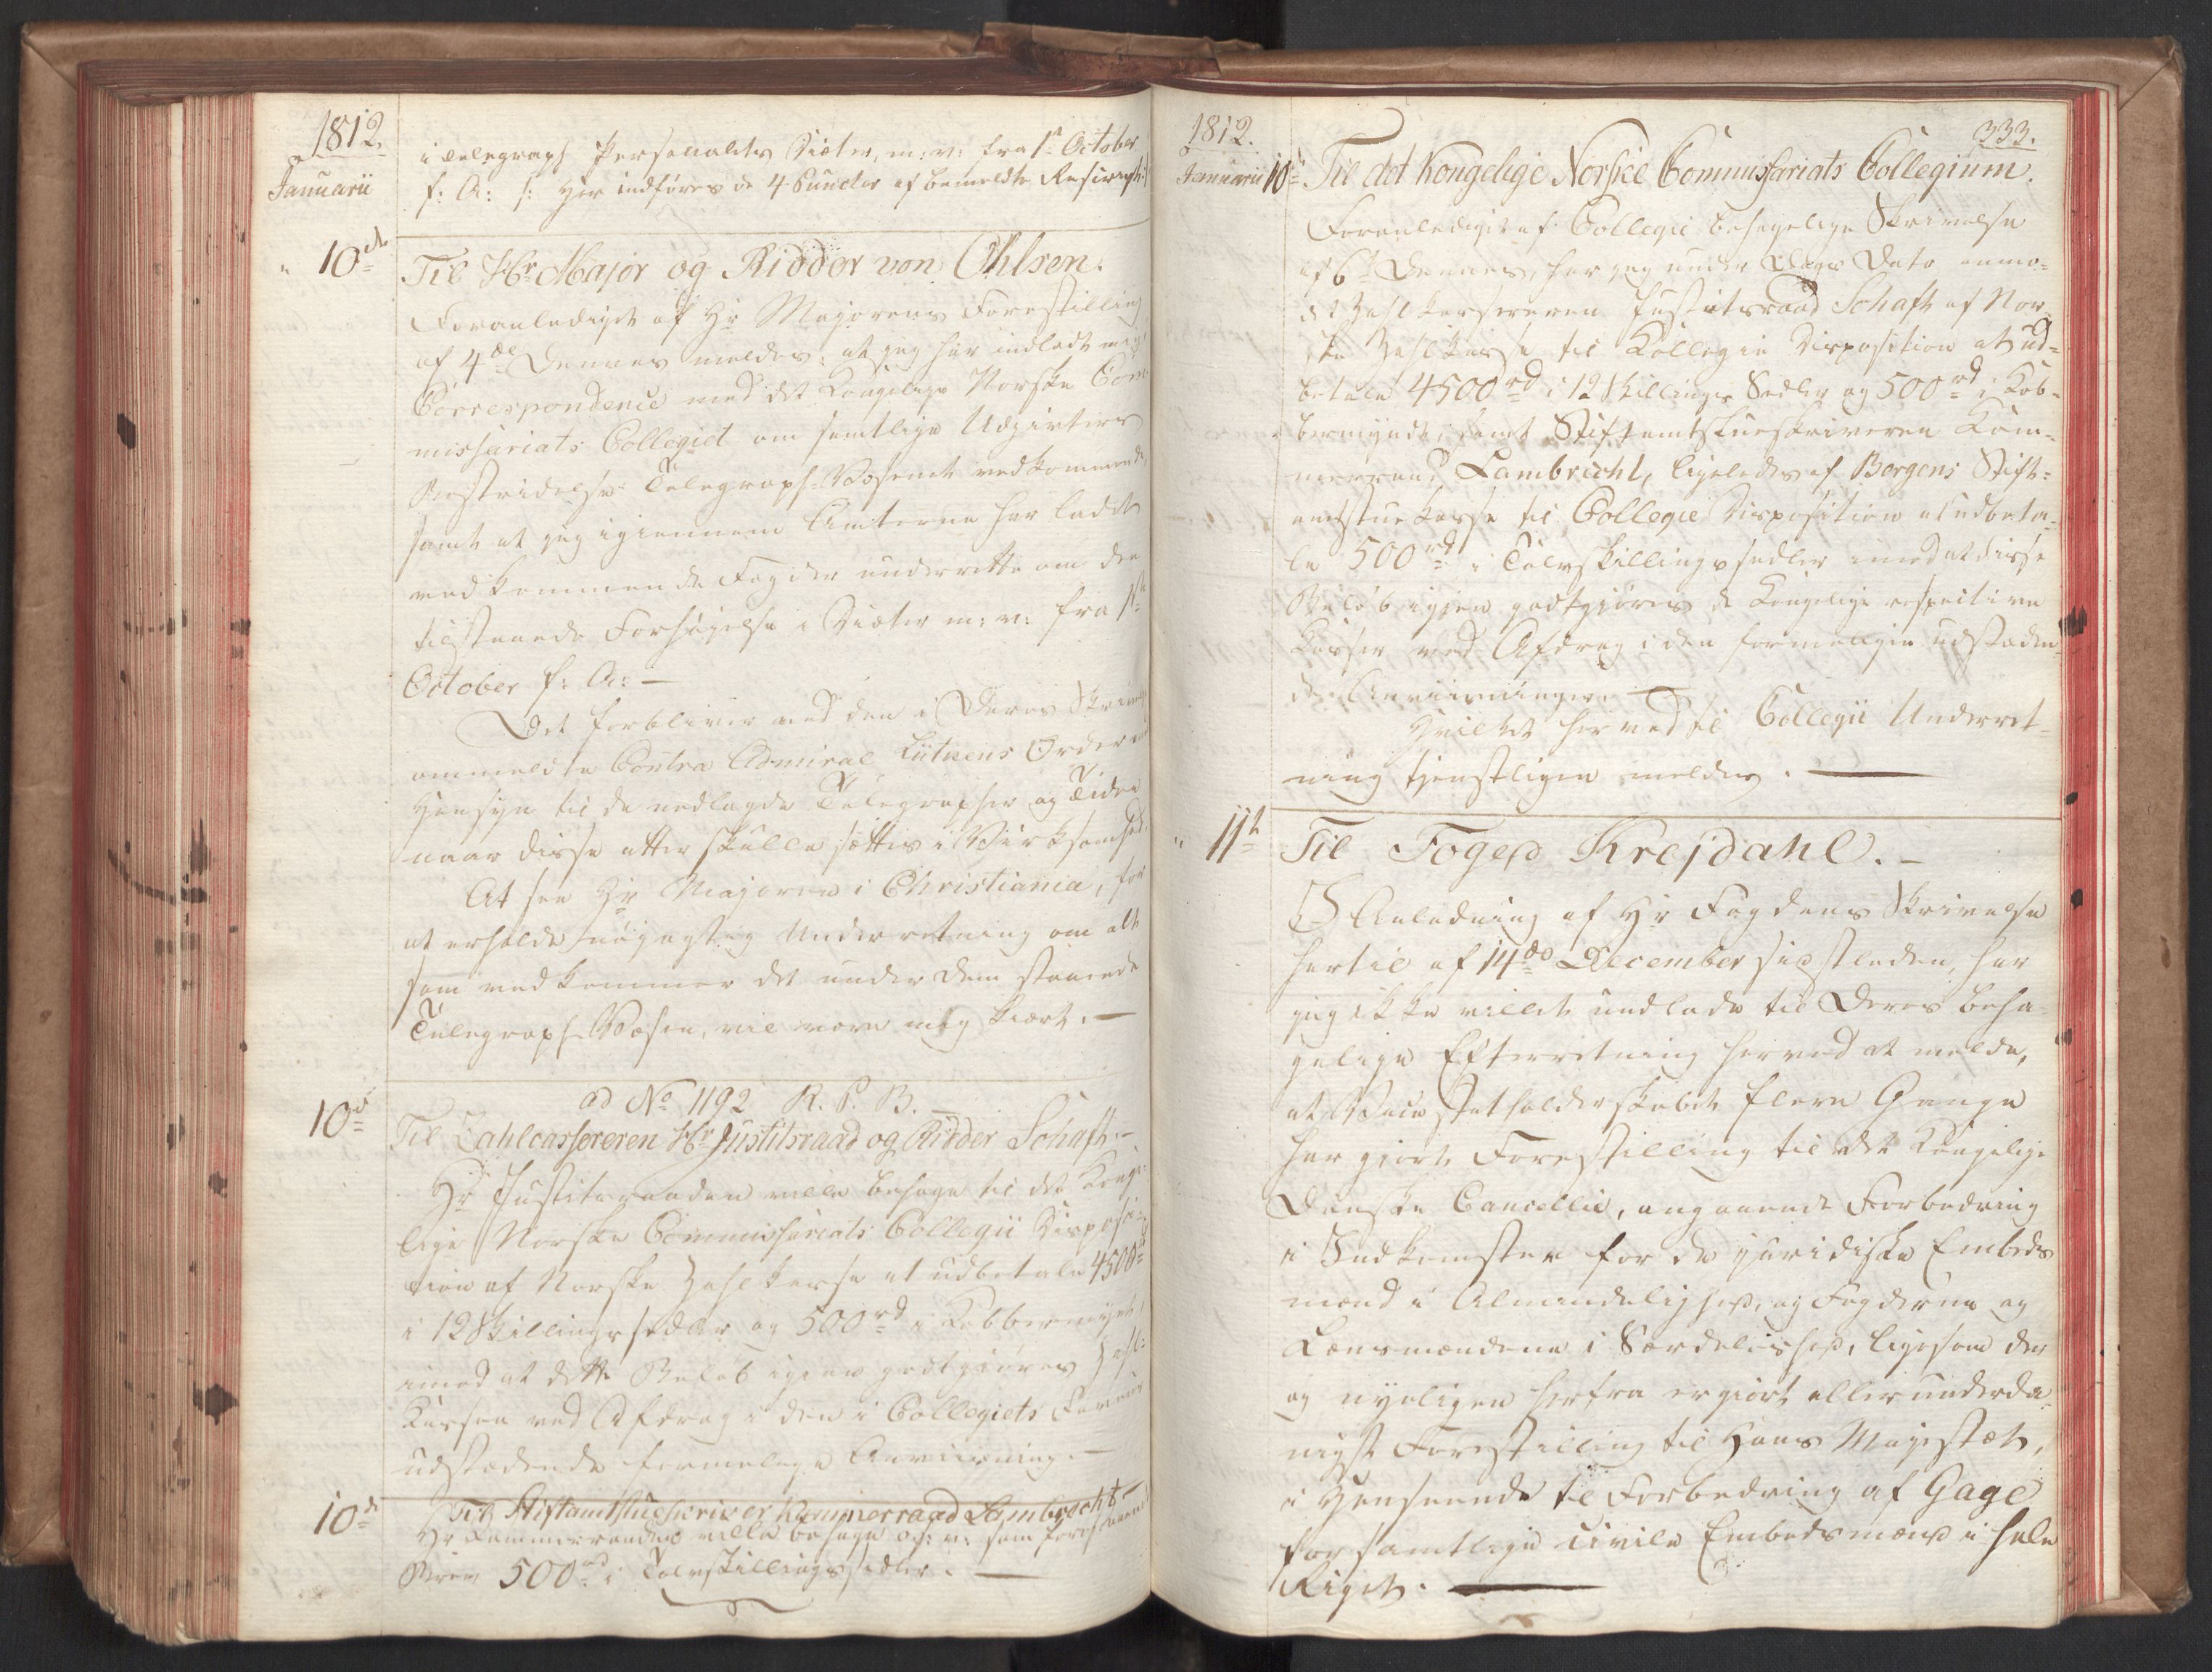 1812.
Januarii
i Telegraph Personalets Diæter, m: v: fra 1ste October
f: A: /: Her indføres de 4 Puncter af bemeldte
10de
Til Hr Major og Ridder von Ohlsen.
Foranlediget af Hr Majorens Forestilling
af 4de Dennes meldes: at jeg har indladt mig i
Correspondence med det Kongelige Norske Com-
missariats Collegiet om samtlige Udgivters
Bestridelse Telegraph-Væsenet vedkommende
samt at jeg igiennem Amterne har ladet
vedkommende Fogder underrette om den
tilstaaede Forhøjelse i Diæter m: v: fra 1ste
October f: A: —
Det forbliver ved den i Deres Skrivelse
ommeldte Contra Admiral Lütkens Ordre
Hensyn til de nedlagde Telegrapher og Tiden
naar disse atter skulle sættes i Virksomhed.
At see Hr Majoren i Christiania, for
at erholde nøjagtig Underretning om alt
som vedkommer det under Dem staaende
Telegraph-Væsen, vil være mig kiært. —
ad No 1192 R. P. B. —
10de
Til Zahlcassereren Hr Justitsraad og Ridder Schaft. —
Hr Justitsraaden ville behage til det Konge-
lige Norske Commissariats Collegii Disposi-
tion af Norske Zahlkasse at udbetale 4500rd
i 12 Skillingssedler og 500rd i Kobbermynt,
imod at dette Beløb igien godtgiøres Zahl-
Kassen ved Afdrag i den i Collegiets Faveur
udstædende formelige Anviisning. —
10de
Til Stiftamtstueskriver Kammerraad Lambrecht —
Hr Kammerraaden ville behage o: s: v: som foregaaende
Brev 500rd i Tolvskillingssedler. —
1812.
333.
Januarii 10de
Til det Kongelige Norske Commissariats Collegium.
Foranlediget af Collegii behagelige Skrivelse
af 6te Dennes, har jeg under Dags Dato anmo-
det Zahlkassereren Justitsraad Schaft af Nor-
ske Zahlkasse til Collegii Disposition at ud-
betale 4500rd i 12 Skillings Sedler og 500rd i Kob-
bermynt; samt Stiftamtstueskriveren Kam-
merraad Lambrecht, ligeledes af Bergens Stift-
amtstue Kasse til Collegii Disposition at udbeta-
le 500rd i Tolvskillingssedler imod at disse
Beløb igjen godtgjøres de Kongelige respective
Kasser ved Afdrag i den formeligen udstæden-
de Anviisninger. —
Hvilket herved til Collegii Underret-
ning tjenstligen meldes. —
11te
Til Foged Krejdahl. —
I Anledning af Hr Fogdens Skrivelse
hertil af 14de December sidstleden, har
jeg ikke villet undlade til Deres beha-
gelige Efterretning herved at melde,
at Vice Statholderskabet flere Gange
har giort Forestilling til det Kongelige
Danske Cancellie, angaaende Forbedring
i Indkomster for de juridiske Embeds
mænd i Almindelighed, og Fogderne og
Lensmændene i Særdeleshed, ligesom der
og nyeligen herfra er giort allerunderda-
nigst Forestilling til Hans Majestæt,
i Henseende til Forbedring af Gage
for samtlige civile Embedsmænd i hele
Riget. —